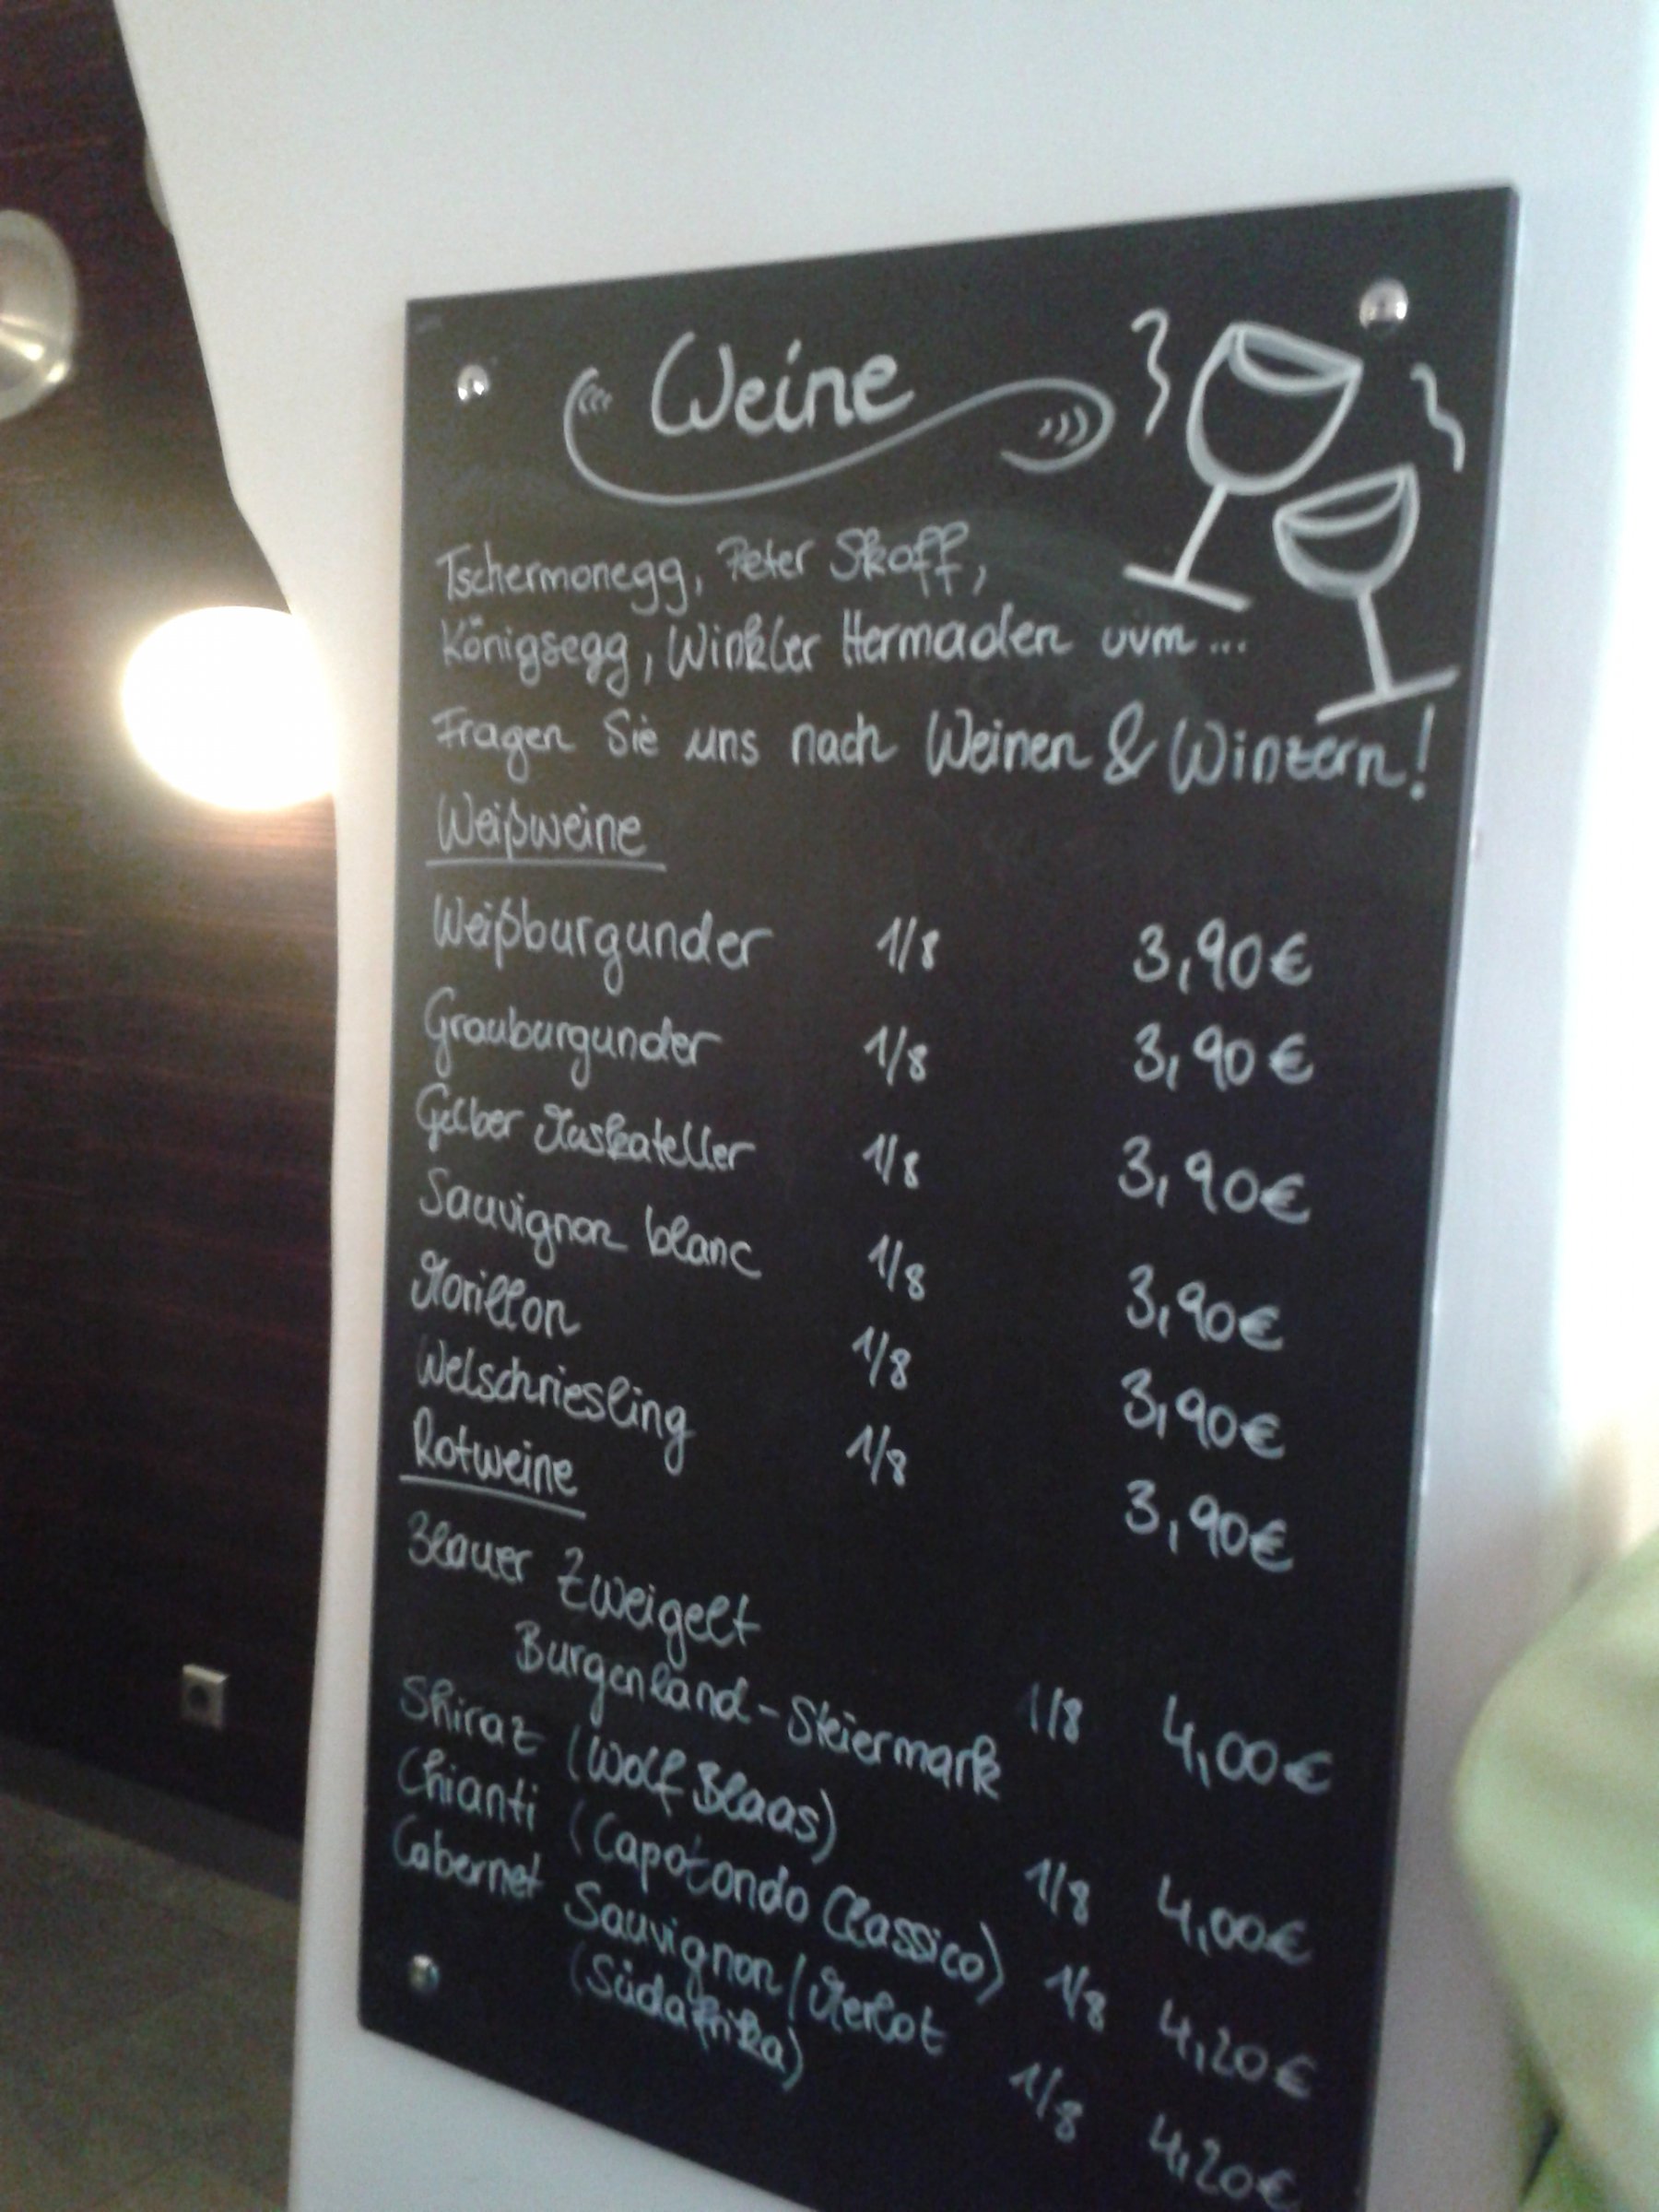 Weine
Tschermonegg, Peter Skoff,
Königsegg, Winkler Hermaden uvm...
Fragen Sie uns nach Weinen & Winzern!
Weißweine
Weißburgunder 1/8 3,90€
Grauburgunder 1/8 3,90€
Gelber Muskateller 1/8 3,90€
Sauvignon blanc 1/8 3,90€
Morillon 1/8 3,90€
Welschriesling 1/8 3,90€
Rotweine
Blauer Zweigelt
Burgenland-Steiermark 1/8 4,00€
Shiraz (Wolf Blaas) 1/8 4,00€
Chianti (Capotondo Classico) 1/8 4,20€
Cabernet Sauvignon/Merlot
(Südafrika) 1/8 4,20€